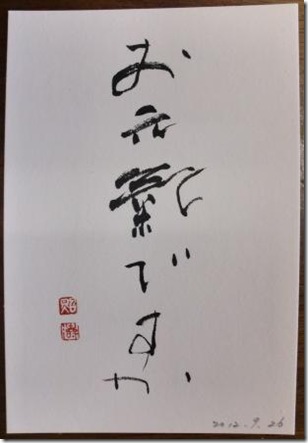 お元氣ですか
2012.9.26